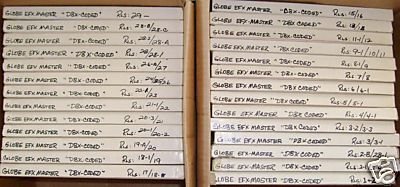 GLOBE EFX MASTER "DBX-CODED" Rls: 29-
GLOBE EFX MASTER "DBX-CODED" Rls:
GLOBE EFX MASTER "DBX-CODED" Rls:
GLOBE EFX MASTER "DBX-CODED" Rls:
GLOBE EFX MASTER "DBX-CODED" Rls:
GLOBE EFX MASTER "DBX-CODED" Rls:
GLOBE EFX MASTER "DBX-CODED" Rls:
GLOBE EFX MASTER "DBX-CODED" Rls: 21-1/22
GLOBE EFX MASTER "DBX-CODED" Rls:
GLOBE EFX MASTER "DBX-CODED" Rls:
GLOBE EFX MASTER "DBX-CODED" Rls:
GLOBE EFX MASTER "DBX-CODED" Rls: 18-1/19
GLOBE EFX MASTER "DBX-CODED" Rls:
GLOBE EFX MASTER "DBX-CODED" Rls: 15/16
GLOBE EFX MASTER "DBX-CODED" Rls:
GLOBE EFX MASTER "DBX-CODED" Rls: 11-1/12
GLOBE EFX MASTER "DBX-CODED" Rls: 9-1/10/11
GLOBE EFX MASTER "DBX-CODED" Rls: 8-1/9
GLOBE EFX MASTER "DBX-CODED" Rls: 7/8
GLOBE EFX MASTER "DBX-CODED" Rls: 6/6-1
GLOBE EFX MASTER "DBX-CODED" Rls: 5/5-1
GLOBE EFX MASTER "DBX-CODED" Rls: 4/4-1
GLOBE EFX MASTER "DBX-CODED" Rls: 3-2/3-3
GLOBE EFX MASTER "DBX-CODED" Rls: 3/3-1
GLOBE EFX MASTER "DBX-CODED" Rls:
GLOBE EFX MASTER "DBX-CODED" Rls:
GLOBE EFX MASTER "DBX-CODED" Rls: